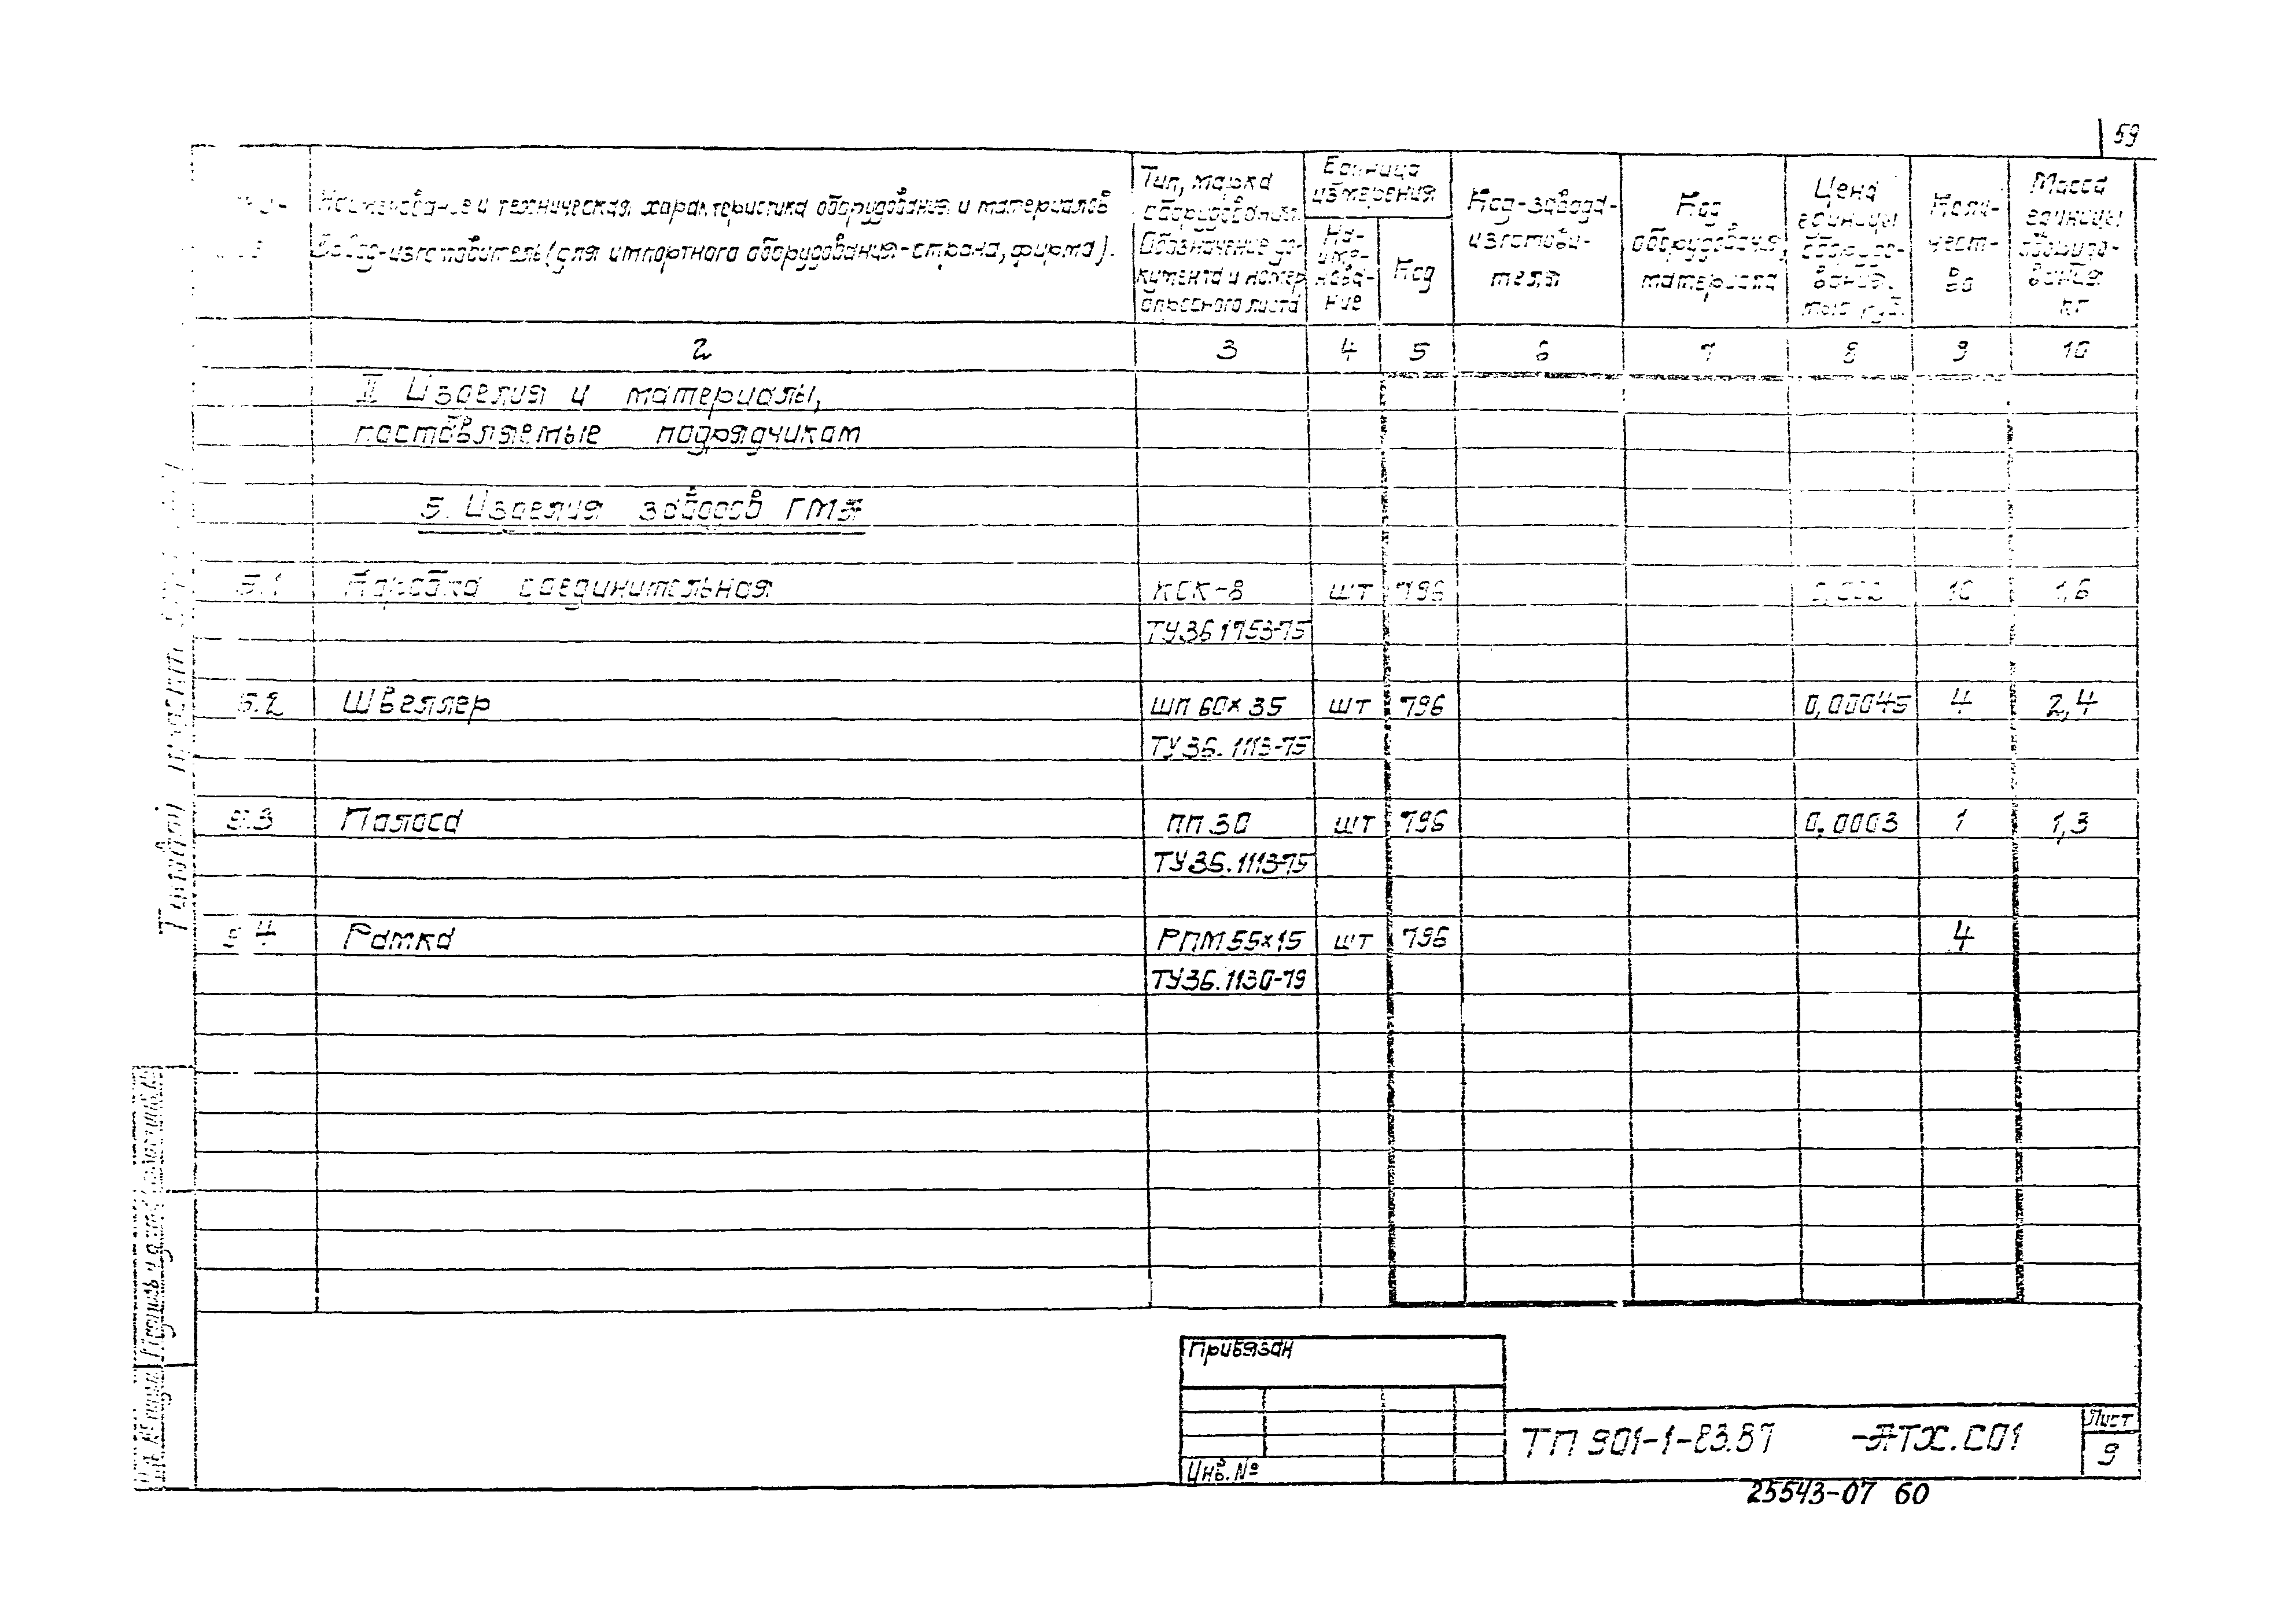 59
Наименование и техническая характеристика оборудования и материалов
Завод-изготовитель (для импортного оборудования-страна, фирма).
Тип, марка
оборудования.
Обозначение до-
кумента и номер
опросного листа
Единица
измерения
На-
име-
нова-
ние
Код
Код-завода-
изготови-
теля
Код
оборудования,
материала
Цена
единицы
оборудо-
вания,
тыс. руб.
Коли-
чест-
во
Масса
единицы
оборудо-
вания
кг
2 3 4 5 6 7 8 9 10
II Изделия и материалы,
поставляемые подрядчикам
5. Изделия заводов ГМЯ
5.1 Коробка соединительная КСК-8 шт 796 10 1,6
ТУ36 1753-75
5.2 Швеллер ШП 60×35 шт 796 0,00045 4 2,4
ТУ36.1113-75
5.3 Полоса ПП 30 шт 796 0,0003 1 1,3
ТУ36.1113-75
5 4 Рамка РПМ 55×15 шт 796 4
ТУ36.1130-79
Типовой проект
Привязан
Инв. №
ТП 901-1-83.87 -АТХ.СО1
Лист
9
25543-07 60
Подпись и дата